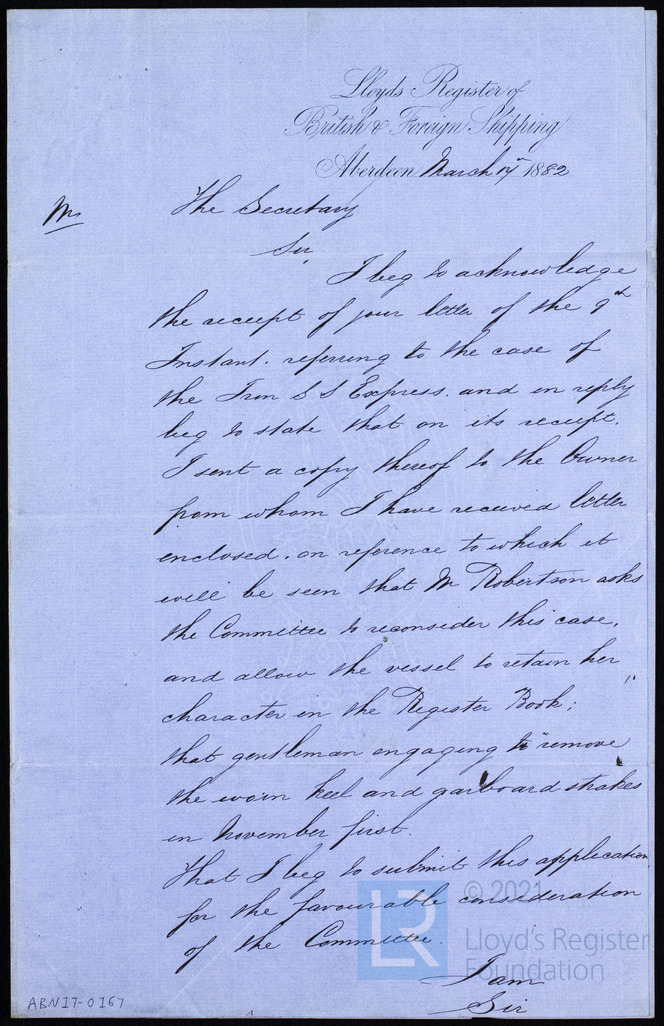 Lloyds Register of
British & Foreign Shipping
Aberdeen March 17th 1882
The Secretary
Sir,
I beg to acknowledge
the receipt of your letter of the 9th
Instant. referring to the case of
the Iron S S Express. and in reply
beg to state that on its receipt.
I sent a copy thereof to the Owner
from whom I have received letter
enclosed. on reference to which it
will be seen that Mr Robertson asks
the Committee to reconsider this case,
and allow the vessel to retain her
character in the Register Book;
that gentleman engaging to "remove
the worn keel and garboard strakes
in November first.
That I beg to submit this application
for the favourable consideration
of the Committee.
I am
Sir
© 2021
LR
Lloyd's Register
Foundation
ABN17-0167